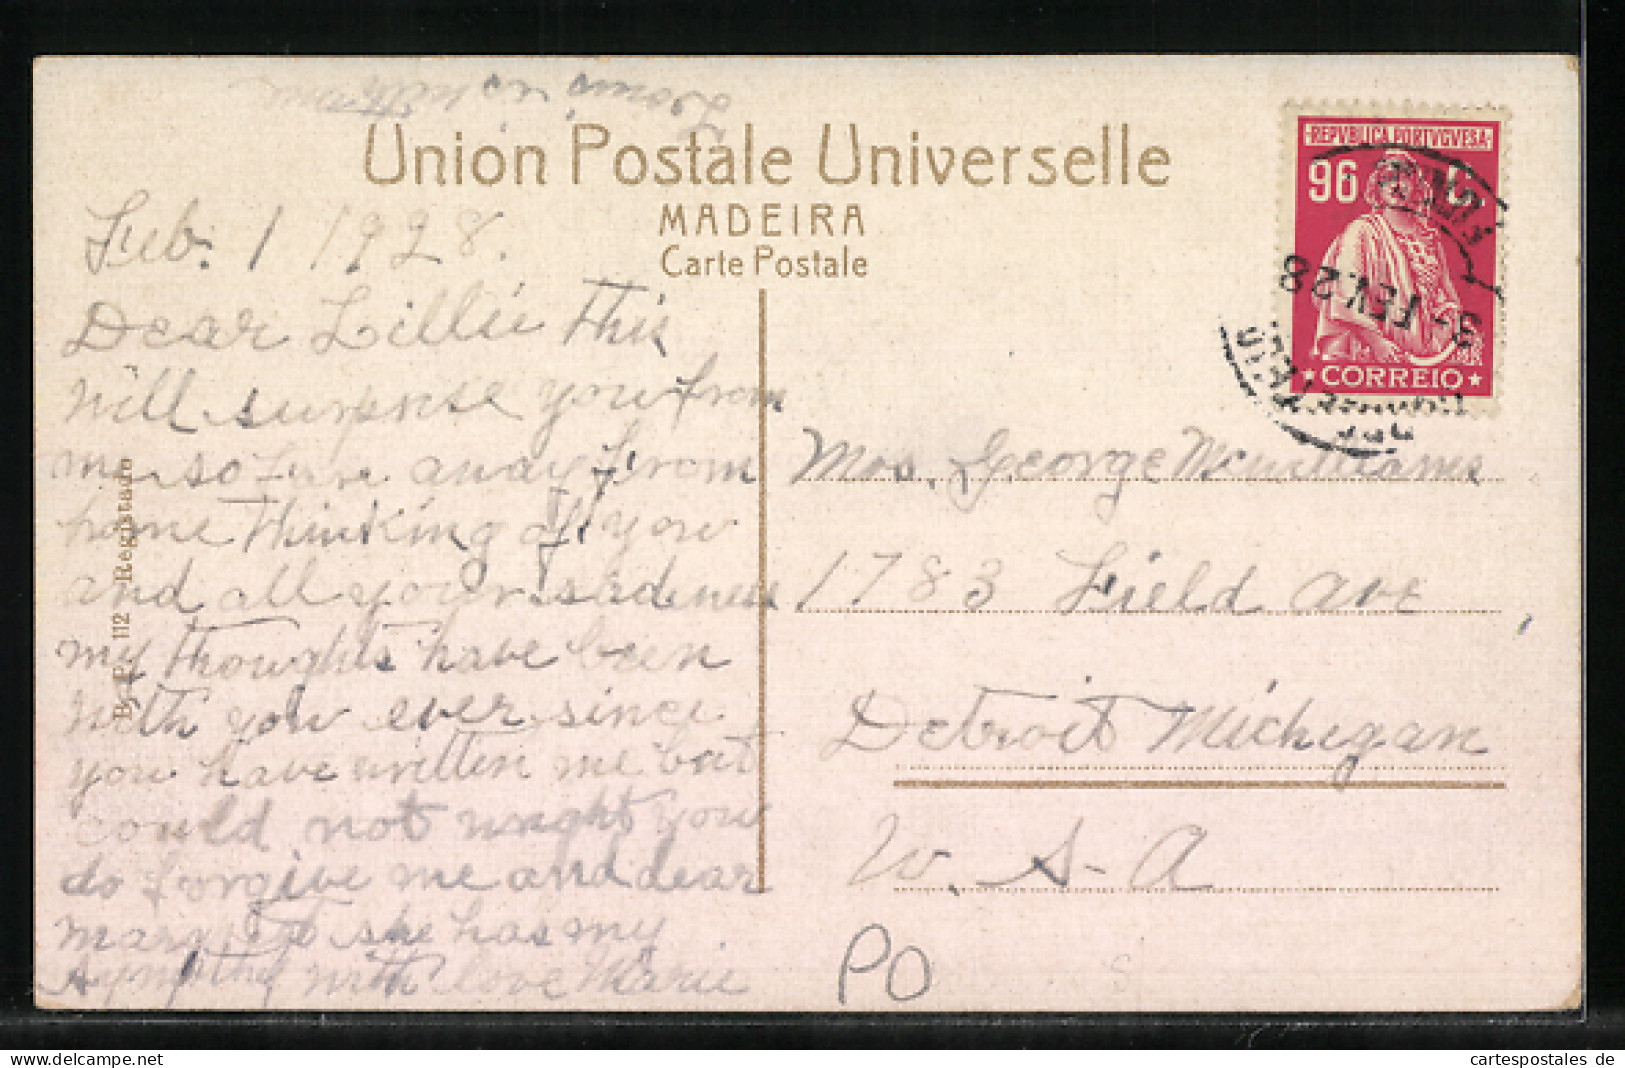 Louis is with me
Union Postale Universelle
MADEIRA
Carte Postale
REPVBLICA PORTVGVESA
96 C.
CORREIO
3- FEV. 28
Feb. 1 1928.
Dear Lillie This
will surprise you from
me so fare away from
home Thinking of you
and all your sadness
my thoughts have been
with you ever since
you have written me but
could not wright you
do forgive me and dear
Margret she has my
Sympathy with love Marie
B. P. 112 Registado
Mrs. George McWilliams
1783 Field Ave
Detroit Michigan
U. S. A
PO
cartespostales de